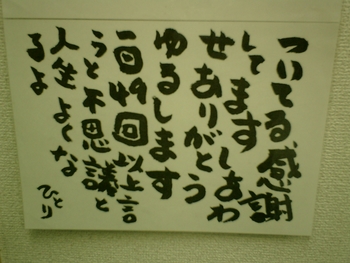 ついてる、感謝
してます しあわ
せ ありがとう
ゆるします
一日49回以上言
うと不思議と
人生よくな
るよ
ひとり